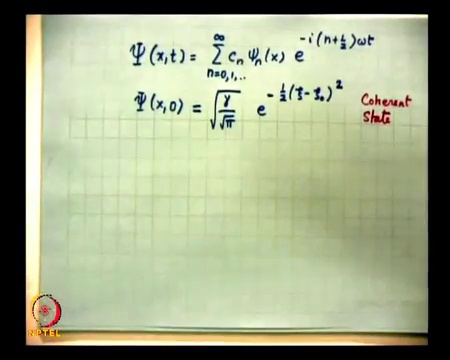 Ψ(x,t) = ∞∑n=0,1,.. cₙ ψₙ(x) e^{-i(n+½)ωt}
Ψ(x,0) = √(γ/√π) e^{-½(ξ-ξ₀)²}
Coherent
State
NPTEL